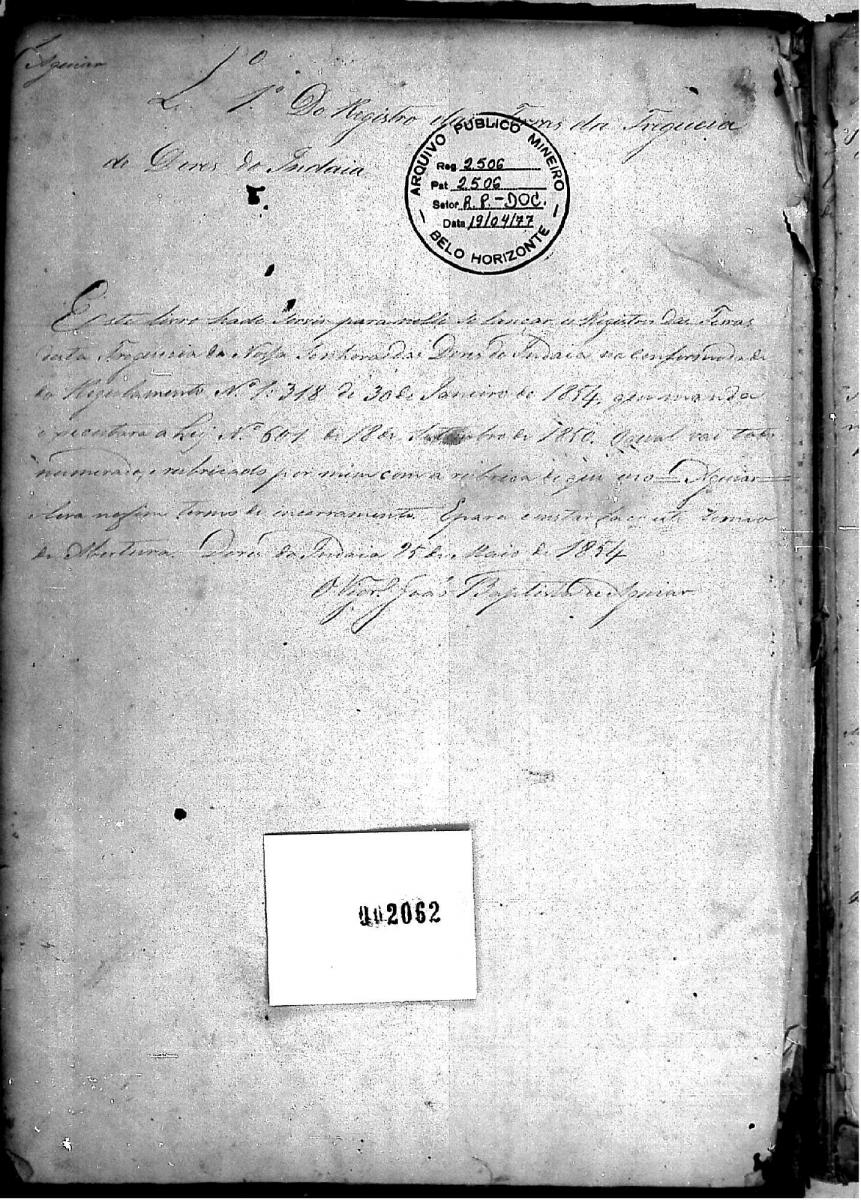 Aguiar
L. 1º Do Registro das Terras da Freguesia
de Dores do Indaia
ARQUIVO PÚBLICO MINEIRO
Reg 2506
Pat 2506
Setor R.P.-DOC.
Data 19/04/77
BELO HORIZONTE
Este livro hade servir para nelle se lançar os Registros das Terras
desta Freguesia de Nossa Senhora das Dores do Indaia na conformidade
do Regulamento Nº 1:318 de 30 de Janeiro de 1854, que manda
executar a Lei Nº 601 de 18 de Setembro de 1850. O qual vai todo
numerado, e rubricado por mim com a rubrica de que uso = Aguiar =
e leva no fim termo de encerramento. E para constar faço este termo
de Abertura. Dores do Indaia 25 de Maio de 1854
O Vigrº João Baptista de Aguiar
002062